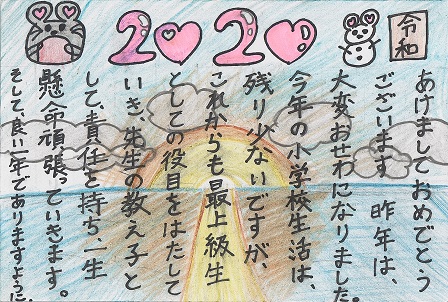 2020
令和
あけましておめでとう
ございます。昨年は、
大変おせわになりました。
今年の小学校生活は、
残り少ないですが、
これからも最上級生
としての役目をはたして
いき、先生の教え子と
して、責任を持ち、一生
懸命頑張っていきます。
そして、良い一年でありますように。